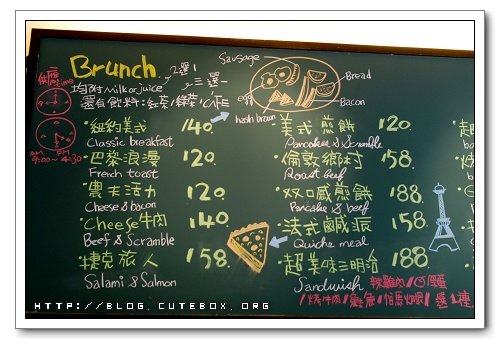 Brunch
2選1
三選一
供應
time
均附 milk or juice
還有飲料:紅茶/綠茶
AM PM
9:00~4:30
Sausage
Bread
Bacon
egg
hash brown
·紐約美式 140.
Classic breakfast
·巴黎浪漫 120.
French toast
·農夫活力 120
Cheese & bacon
·Cheese牛肉 140
Beef & Scramble
·捷克旅人 158.
Salami & Salmon
·美式煎餅 120.
Pancakes & Scramble
·倫敦鄉村 158.
Roast Beef
·双口感煎餅 188.
Pancake & beef
·法式鹹派 158.
Quiche meal
·超美味三明治 188.
Sandwish 辣雞肉/
/烤牛肉/鮪魚/
HTTP://BLOG.CUTEBOX.ORG